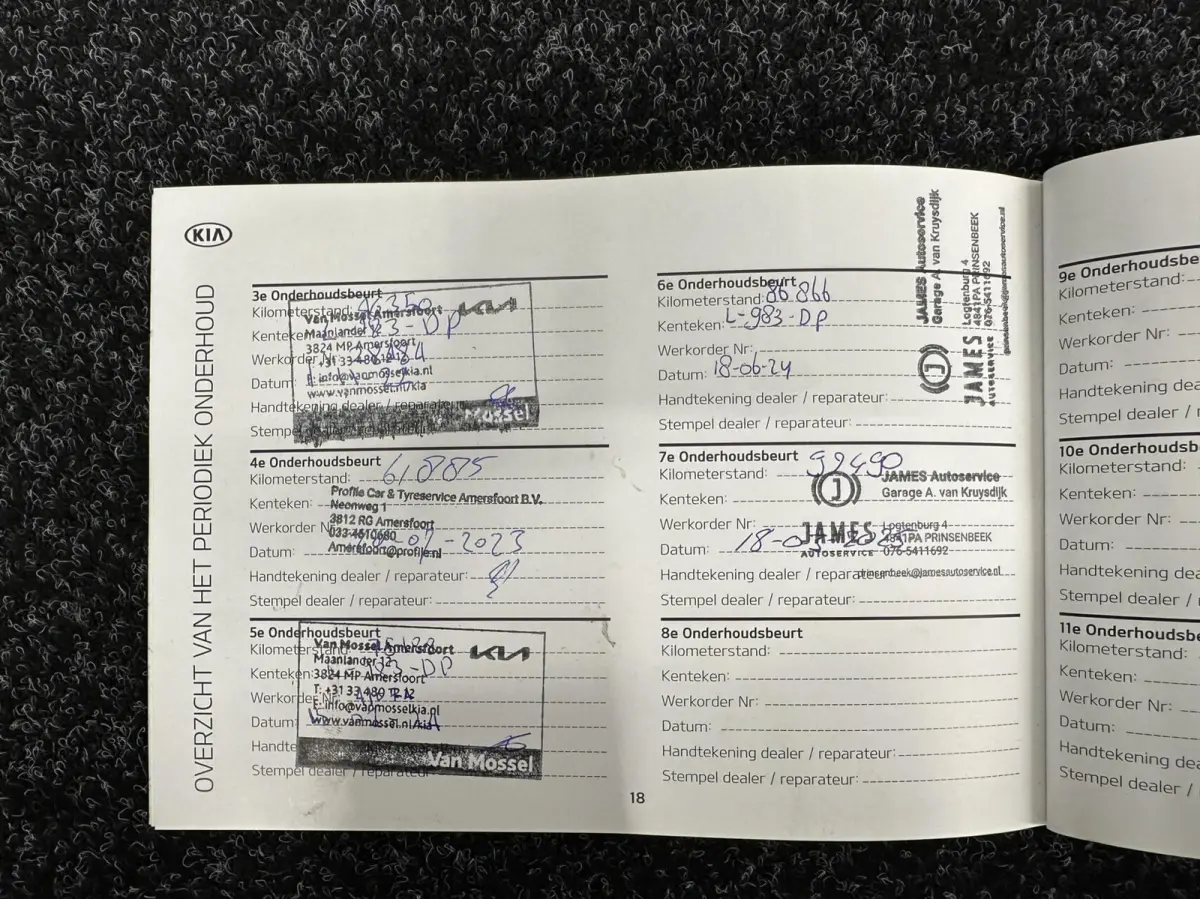 KIA
OVERZICHT VAN HET PERIODIEK ONDERHOUD
3e Onderhoudsbeurt
Kilometerstand:
Kenteken: 83-DP
Werkorder Nr:
Datum:
Handtekening dealer / reparateur:
Stempel dealer / reparateur:
KIA
Van Mossel Amersfoort
Maanlander 12
3824 MP Amersfoort
T: +31 33 480 12 12
E: info@vanmosselkia.nl
www.vanmossel.nl/kia
Van Mossel
4e Onderhoudsbeurt
Kilometerstand: 61,885
Kenteken:
Werkorder Nr:
Datum: -07-2023
Handtekening dealer / reparateur:
Stempel dealer / reparateur:
Profile Car & Tyreservice Amersfoort B.V.
Neonweg 1
3812 RG Amersfoort
033-4610680
Amersfoort@profile.nl
5e Onderhoudsbeurt
Kilometerstand:
Kenteken: 83-DP
Werkorder Nr:
Datum:
Handtekening dealer / reparateur:
Stempel dealer / reparateur:
KIA
Van Mossel Amersfoort
Maanlander 12
3824 MP Amersfoort
T: +31 33 480 12 12
E: info@vanmosselkia.nl
www.vanmossel.nl/kia
Van Mossel
6e Onderhoudsbeurt
Kilometerstand: 86 866
Kenteken: L-983-DP
Werkorder Nr:
Datum: 18-06-24
Handtekening dealer / reparateur:
Stempel dealer / reparateur:
JAMES Autoservice
Garage A. van Kruysdijk
JAMES
AUTOSERVICE
Logtenburg 4
4841PA PRINSENBEEK
076-5411692
prinsenbeek@jamesautoservice.nl
7e Onderhoudsbeurt
Kilometerstand: 92490
Kenteken:
Werkorder Nr:
Datum: 18-
Handtekening dealer / reparateur:
Stempel dealer / reparateur:
JAMES Autoservice
Garage A. van Kruysdijk
JAMES
AUTOSERVICE
Logtenburg 4
4841PA PRINSENBEEK
076-5411692
prinsenbeek@jamesautoservice.nl
8e Onderhoudsbeurt
Kilometerstand:
Kenteken:
Werkorder Nr:
Datum:
Handtekening dealer / reparateur:
Stempel dealer / reparateur:
18
9e Onderhoudsbe
Kilometerstand:
Kenteken:
Werkorder Nr:
Datum:
Handtekening dea
Stempel dealer /
10e Onderhoudsb
Kilometerstand:
Kenteken:
Werkorder Nr:
Datum:
Handtekening dea
Stempel dealer /
11e Onderhoudsbe
Kilometerstand:
Kenteken:
Werkorder Nr:
Datum:
Handtekening dea
Stempel dealer /